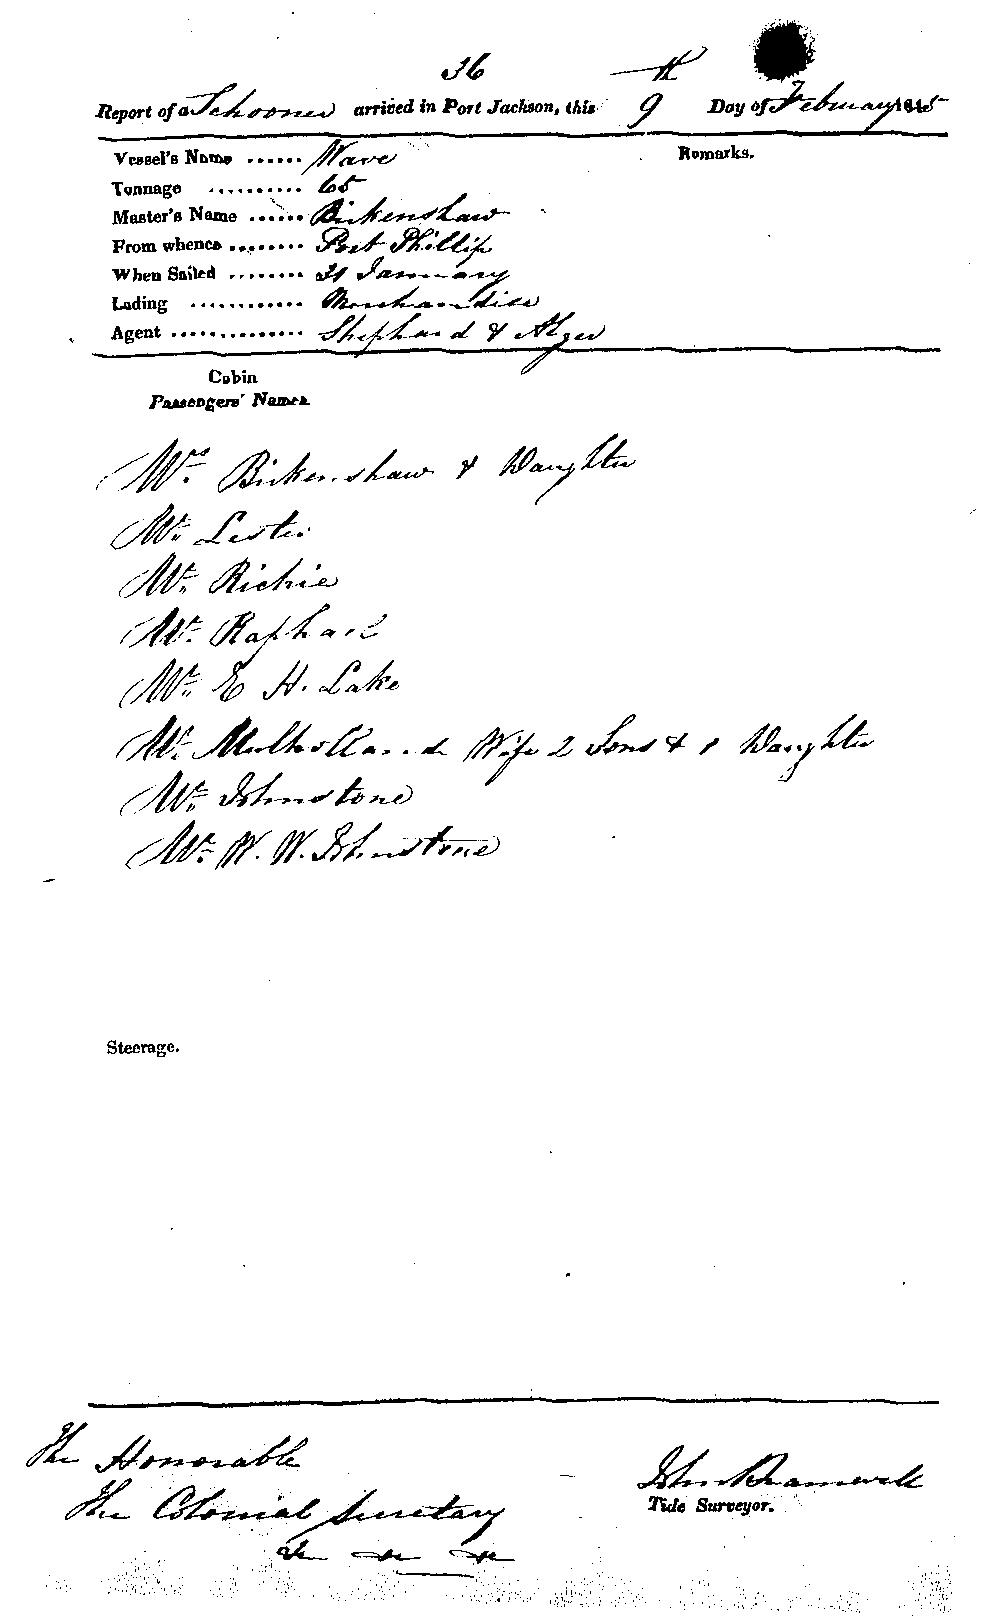 36
Report of a Schooner arrived in Port Jackson, this 9 Day of February 1845
Vessel's Name ...... Wave Remarks.
Tonnage .......... 65
Master's Name ...... Birkenshaw
From whence ........ Port Phillip
When Sailed ........ 31 January
Lading ............ Merchandise
Agent ............. Shephard & Alger
Cabin
Passengers' Names.
Mrs Birkenshaw & Daughter
Mr Lester
Mr Richie
Mr Raphael
Mr E H. Lake
Mr Mulholland Wife 2 Sons & 1 Daughter
Mr Johnstone
Mr W. W. Johnstone
Steerage.
The Honorable
The Colonial Secretary
John Bramwell
Tide Surveyor.